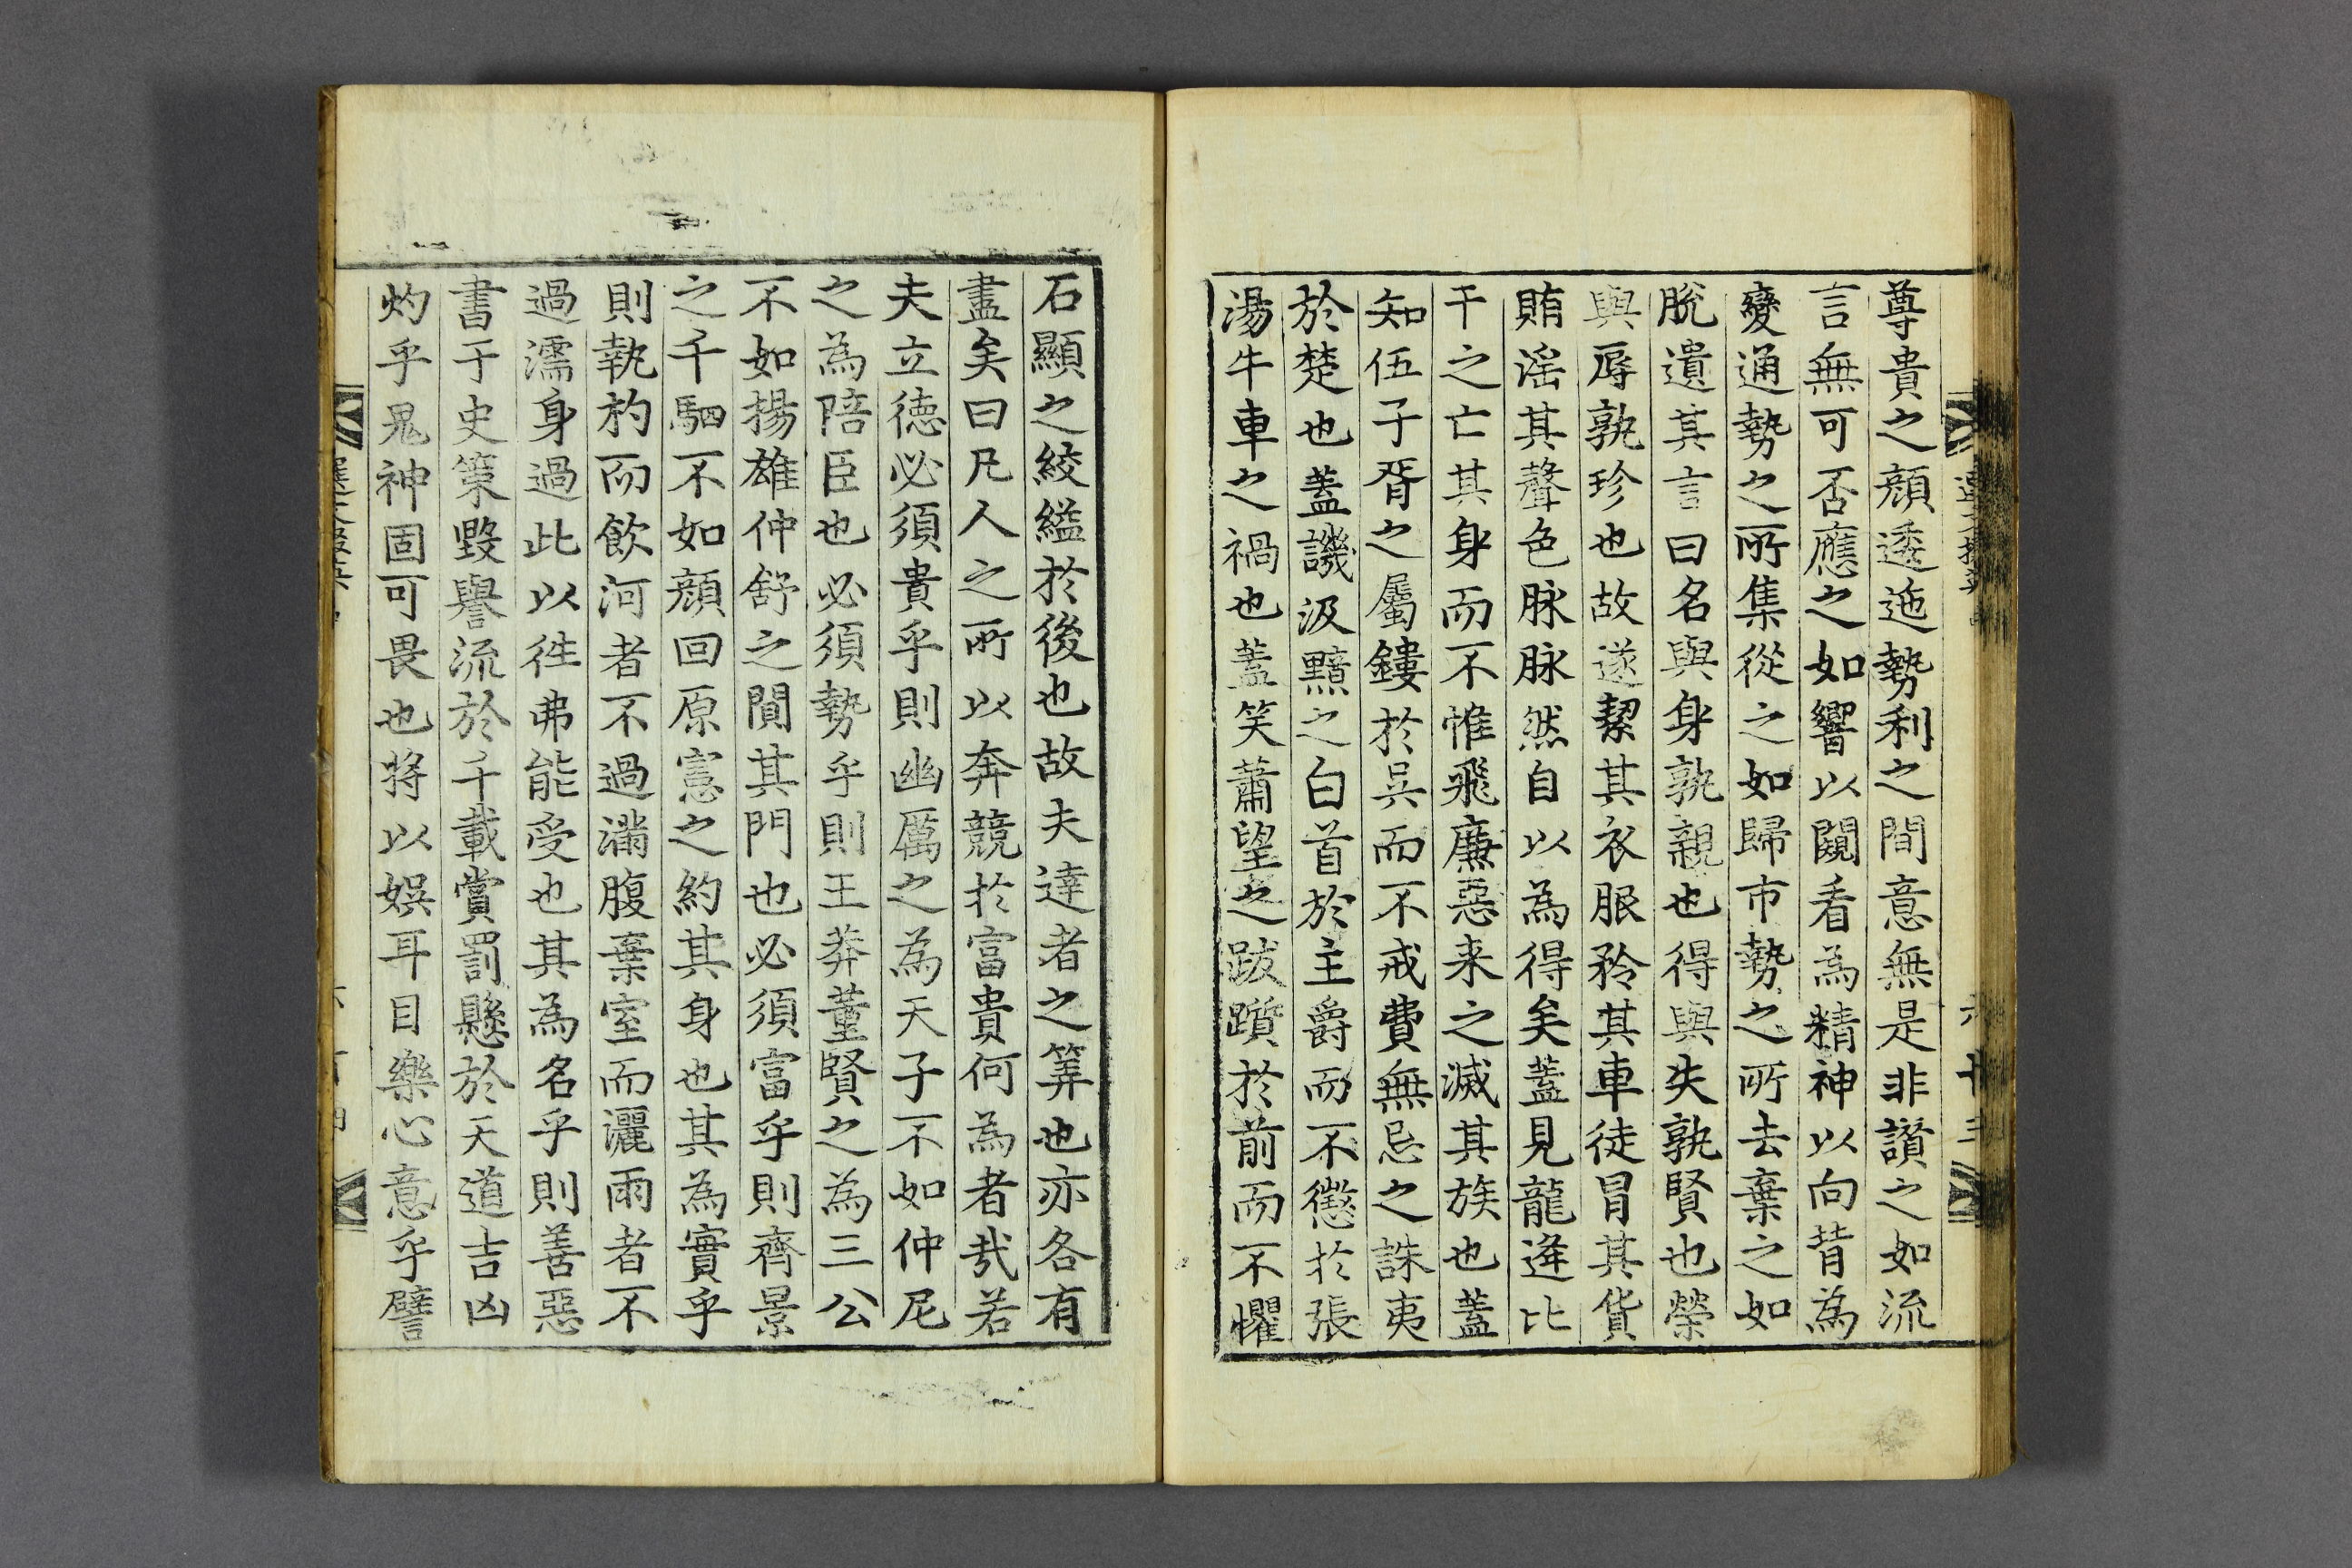 尊貴之顔逶迤勢利之間意無是非讃之如流
言無可否應之如響以闚看為精神以向背為
變通勢之所集從之如歸市勢之所去棄之如
脫遺其言曰名與身孰親也得與失孰賢也榮
與辱孰珍也故遂絜其衣服矜其車徒冒其貨
賄滛其聲色脉脉然自以為得矣蓋見龍逄比
干之亡其身而不惟飛廉惡来之滅其族也蓋
知伍子胥之屬鏤於吳而不戒費無忌之誅夷
於楚也蓋譏汲黯之白首於主爵而不懲於張
湯牛車之禍也蓋笑蕭望之跋躓於前而不懼
石顯之絞縊於後也故夫達者之筭也亦各有
盡矣曰凡人之所以奔競於富貴何為者㢤若
夫立徳必須貴乎則幽厲之為天子不如仲尼
之為陪臣也必須勢乎則王莽董賢之為三公
不如揚雄仲舒之閴其門也必須富乎則齊景
之千駟不如顔回原憲之約其身也其為實乎
則執杓而飲河者不過滿腹棄室而灑雨者不
過濡身過此以徃弗能受也其為名乎則善惡
書于史策毀譽流於千載賞罰懸於天道吉凶
灼乎鬼神固可畏也将以娛耳目樂心意乎譬